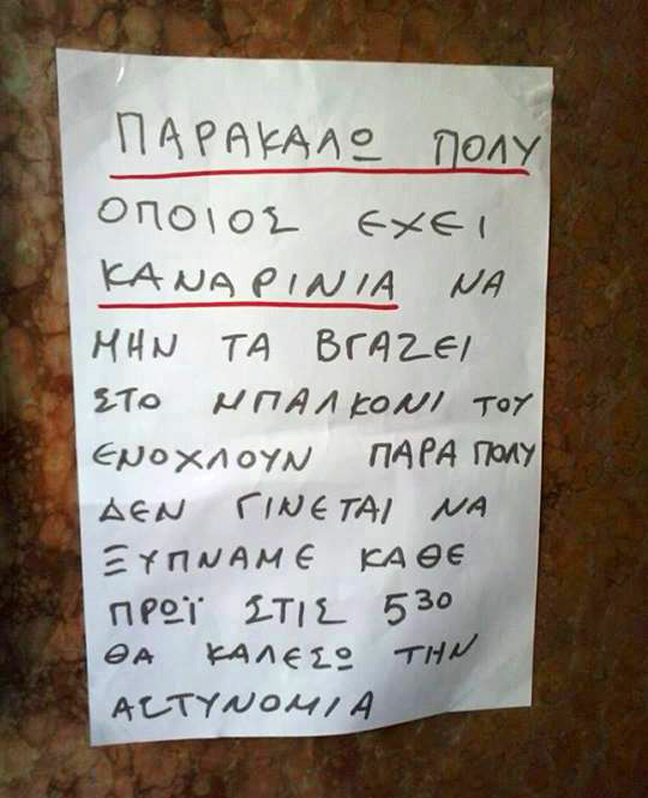 ΠΑΡΑΚΑΛΩ ΠΟΛΥ
ΟΠΟΙΟΣ ΕΧΕΙ
ΚΑΝΑΡΙΝΙΑ ΝΑ
ΜΗΝ ΤΑ ΒΓΑΖΕΙ
ΣΤΟ ΜΠΑΛΚΟΝΙ ΤΟΥ
ΕΝΟΧΛΟΥΝ ΠΑΡΑ ΠΟΛΥ
ΔΕΝ ΓΙΝΕΤΑΙ ΝΑ
ΞΥΠΝΑΜΕ ΚΑΘΕ
ΠΡΩΪ ΣΤΙΣ 5³⁰
ΘΑ ΚΑΛΕΣΩ ΤΗΝ
ΑΣΤΥΝΟΜΙΑ